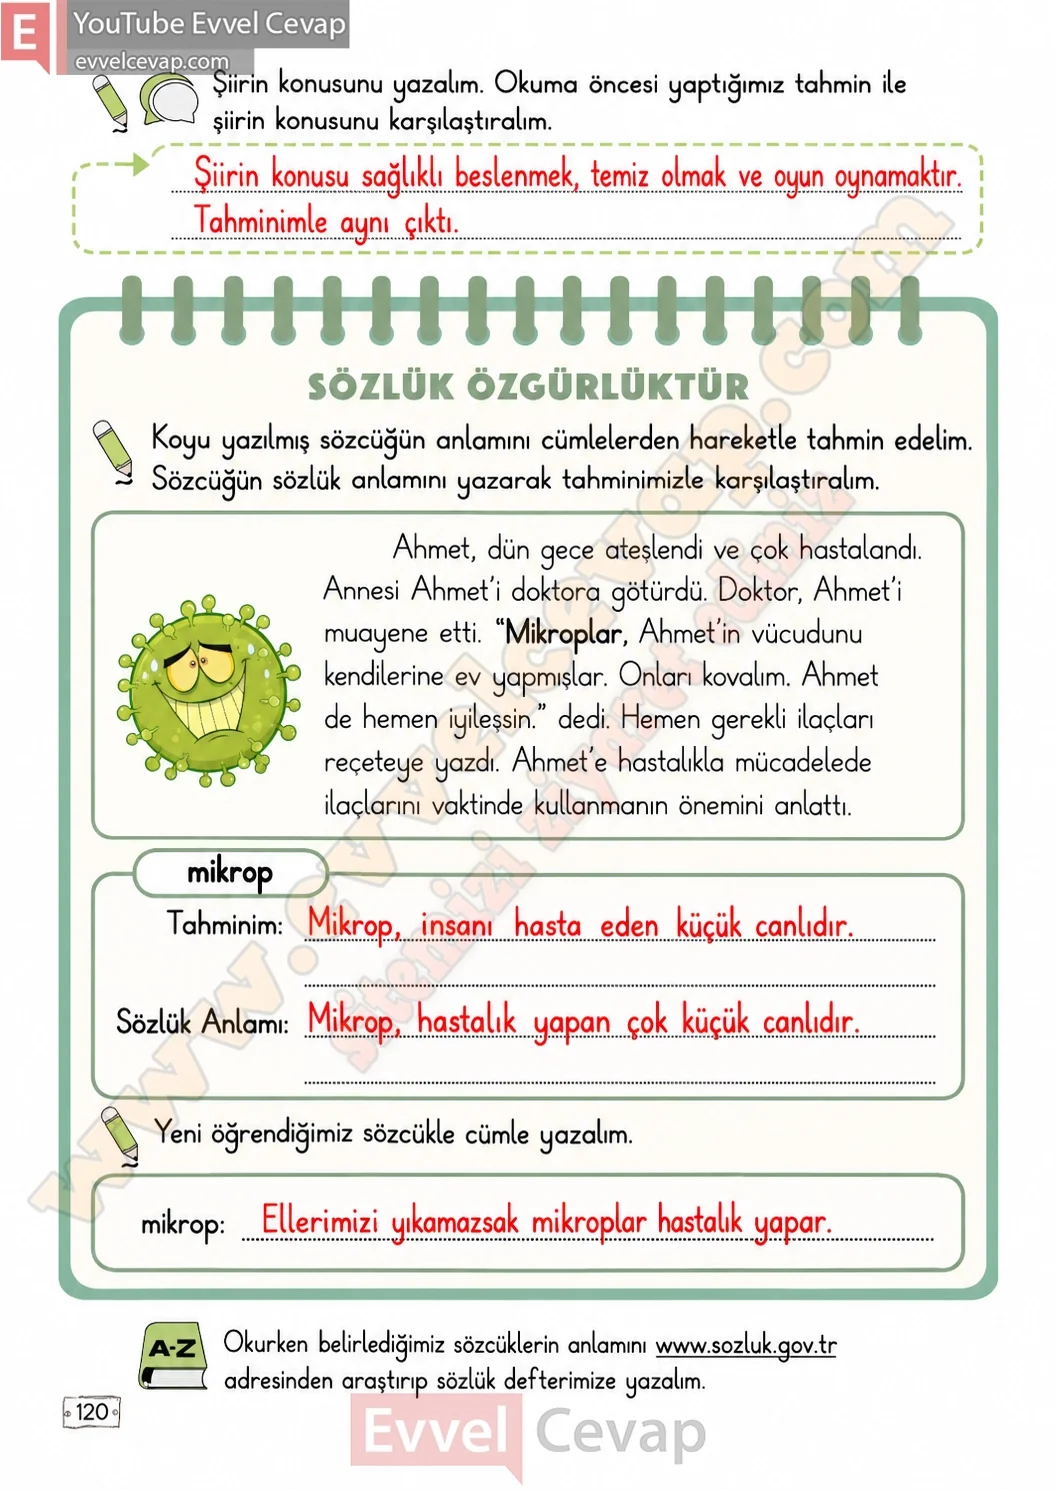 E YouTube Evvel Cevap
evvelcevap.com
Şiirin konusunu yazalım. Okuma öncesi yaptığımız tahmin ile
şiirin konusunu karşılaştıralım.
Şiirin konusu sağlıklı beslenmek, temiz olmak ve oyun oynamaktır.
Tahminimle aynı çıktı.
SÖZLÜK ÖZGÜRLÜKTÜR
Koyu yazılmış sözcüğün anlamını cümlelerden hareketle tahmin edelim.
Sözcüğün sözlük anlamını yazarak tahminimizle karşılaştıralım.
Ahmet, dün gece ateşlendi ve çok hastalandı.
Annesi Ahmet'i doktora götürdü. Doktor, Ahmet'i
muayene etti. “Mikroplar, Ahmet'in vücudunu
kendilerine ev yapmışlar. Onları kovalım. Ahmet
de hemen iyileşsin.” dedi. Hemen gerekli ilaçları
reçeteye yazdı. Ahmet'e hastalıkla mücadelede
ilaçlarını vaktinde kullanmanın önemini anlattı.
mikrop
Tahminim: Mikrop, insanı hasta eden küçük canlıdır.
Sözlük Anlamı: Mikrop, hastalık yapan çok küçük canlıdır.
Yeni öğrendiğimiz sözcükle cümle yazalım.
mikrop: Ellerimizi yıkamazsak mikroplar hastalık yapar.
A-Z
Okurken belirlediğimiz sözcüklerin anlamını www.sozluk.gov.tr
adresinden araştırıp sözlük defterimize yazalım.
120
Evvel Cevap
www.evvelcevap.com
sitemizi ziyaret ediniz